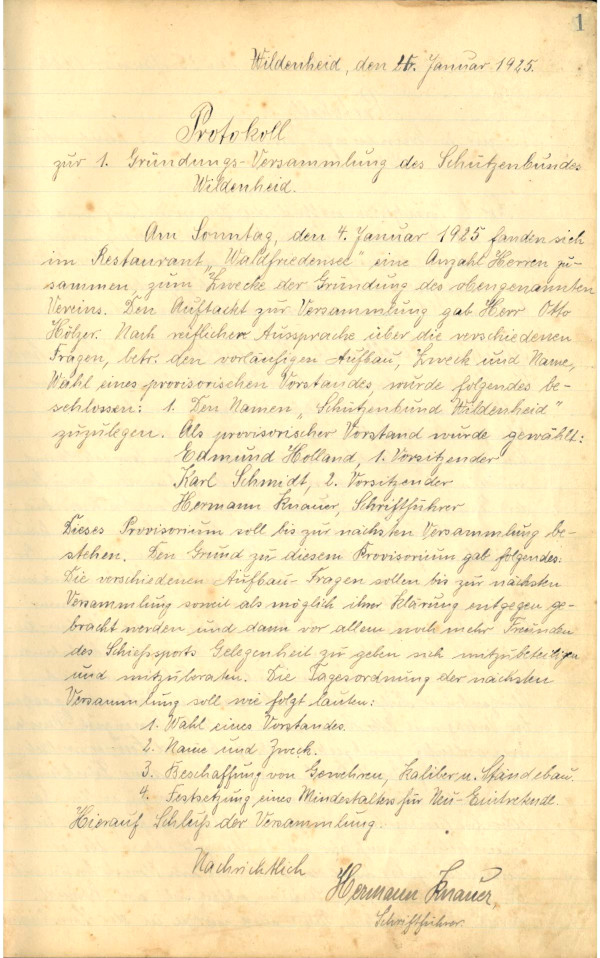 1
Wildenheid, den 4. Januar 1925.
Protokoll
zur 1. Gründungs-Versammlung des Schützenbundes
Wildenheid.
Am Sonntag, den 4. Januar 1925 fanden sich
im Restaurant „Waldfriedensee" eine Anzahl Herren zu-
sammen, zum Zwecke der Gründung des obengenannten
Vereins. Den Auftackt zur Versammlung gab Herr Otto
Hölzer. Nach reiflicher Aussprache über die verschiedenen
Fragen, betr. den vorläufigen Aufbau, Zweck und Name,
Wahl eines provisorischen Vorstandes, wurde folgendes be-
schlossen: 1. Den Namen „Schützenbund Wildenheid"
zuzulegen. Als provisorischer Vorstand wurde gewählt:
Edmund Holland, 1. Vorsitzender
Karl Schmidt, 2. Vorsitzender
Hermann Knauer, Schriftführer
Dieses Provisorium soll bis zur nächsten Versammlung be-
stehen. Den Grund zu diesem Provisorium gab folgendes:
Die verschiedenen Aufbau-Fragen sollen bis zur nächsten
Versammlung soweit als möglich ihrer Klärung entgegen ge-
bracht werden und dann vor allem noch mehr Freunden
des Schiessports Gelegenheit zu geben sich mitzubeteiligen
und mitzuberaten. Die Tagesordnung der nächsten
Versammlung soll wie folgt lauten:
1. Wahl eines Vorstandes.
2. Name und Zweck.
3. Beschaffung von Gewehren, Kaliber u. Ständebau.
4. Festsetzung eines Mindestalters für Neu-Eintretende.
Hierauf Schluß der Versammlung.
Nachrichtlich
Hermann Knauer,
Schriftführer.